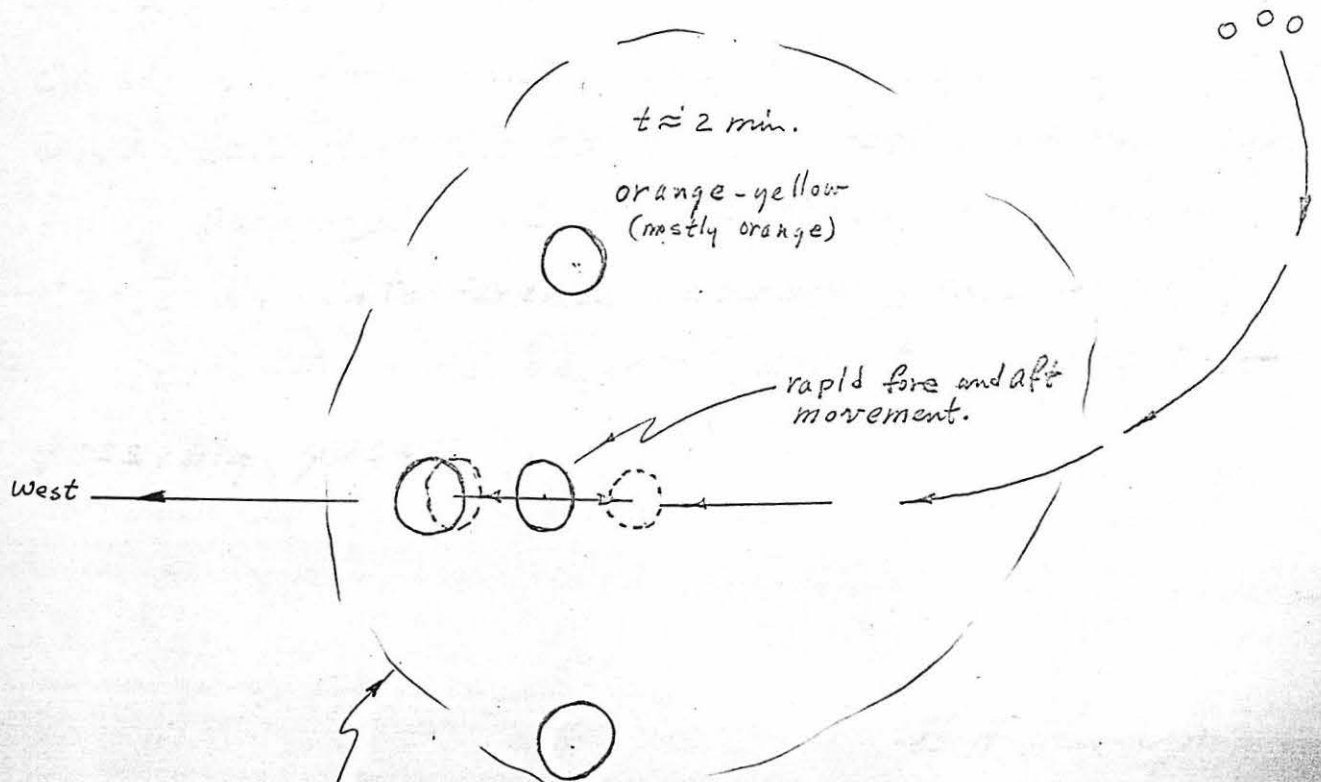 t ≈ 2 min.
orange-yellow
(mostly orange)
rapid fore and aft
movement.
West